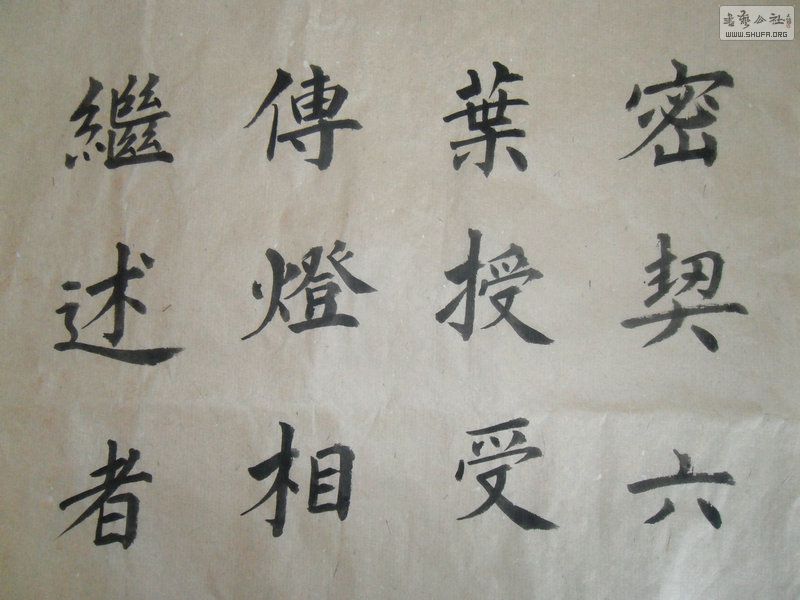 密契六
葉授受
傳燈相
繼述者
書藝公社
WWW.SHUFA.ORG